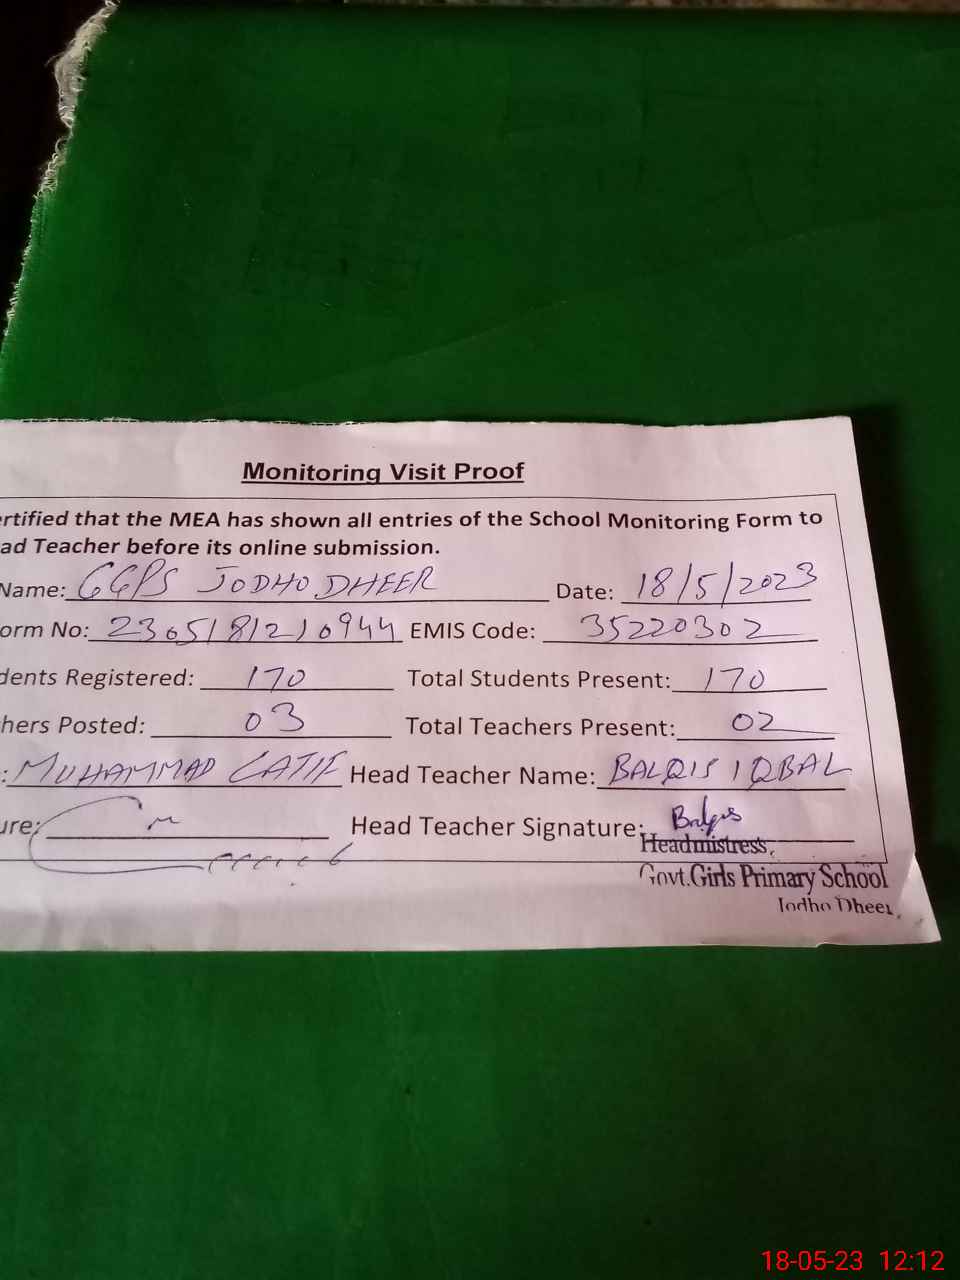 Monitoring Visit Proof
ertified that the MEA has shown all entries of the School Monitoring Form to
ad Teacher before its online submission.
Name: GGPS JODHO DHEER Date: 18/5/2023
orm No: 230518210944 EMIS Code: 35220302
dents Registered: 170 Total Students Present: 170
hers Posted: 03 Total Teachers Present: 02
: MUHAMMAD LATIF Head Teacher Name: BALQIS IQBAL
ure: Head Teacher Signature: Balqis
Headmistress,
Govt.Girls Primary School
Jodho Dheer
18-05-23 12:12